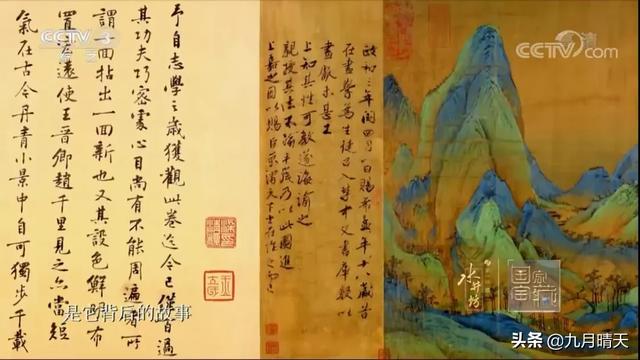 CCTV 3
综艺
CCTV.com
政和三年閏四月一日賜希孟年十八歲昔
在畫學為生徒召入禁中文書庫數以
畫獻未甚工
上知其性可教遂誨諭之
親授其法不踰半歲乃以此圖進
上嘉之因以賜臣京謂天下士在作之而已
予自志學之歲獲觀此卷迄今已僅百過
其功夫巧密處心目尚有不能周遍者所
謂一回拈出一回新也又其設色鮮明布
置宏遠使王晉卿趙千里見之亦當短
氣在古今丹青小景中自可獨步千載
水井坊
国家宝藏
是它背后的故事
头条 @九月晴天